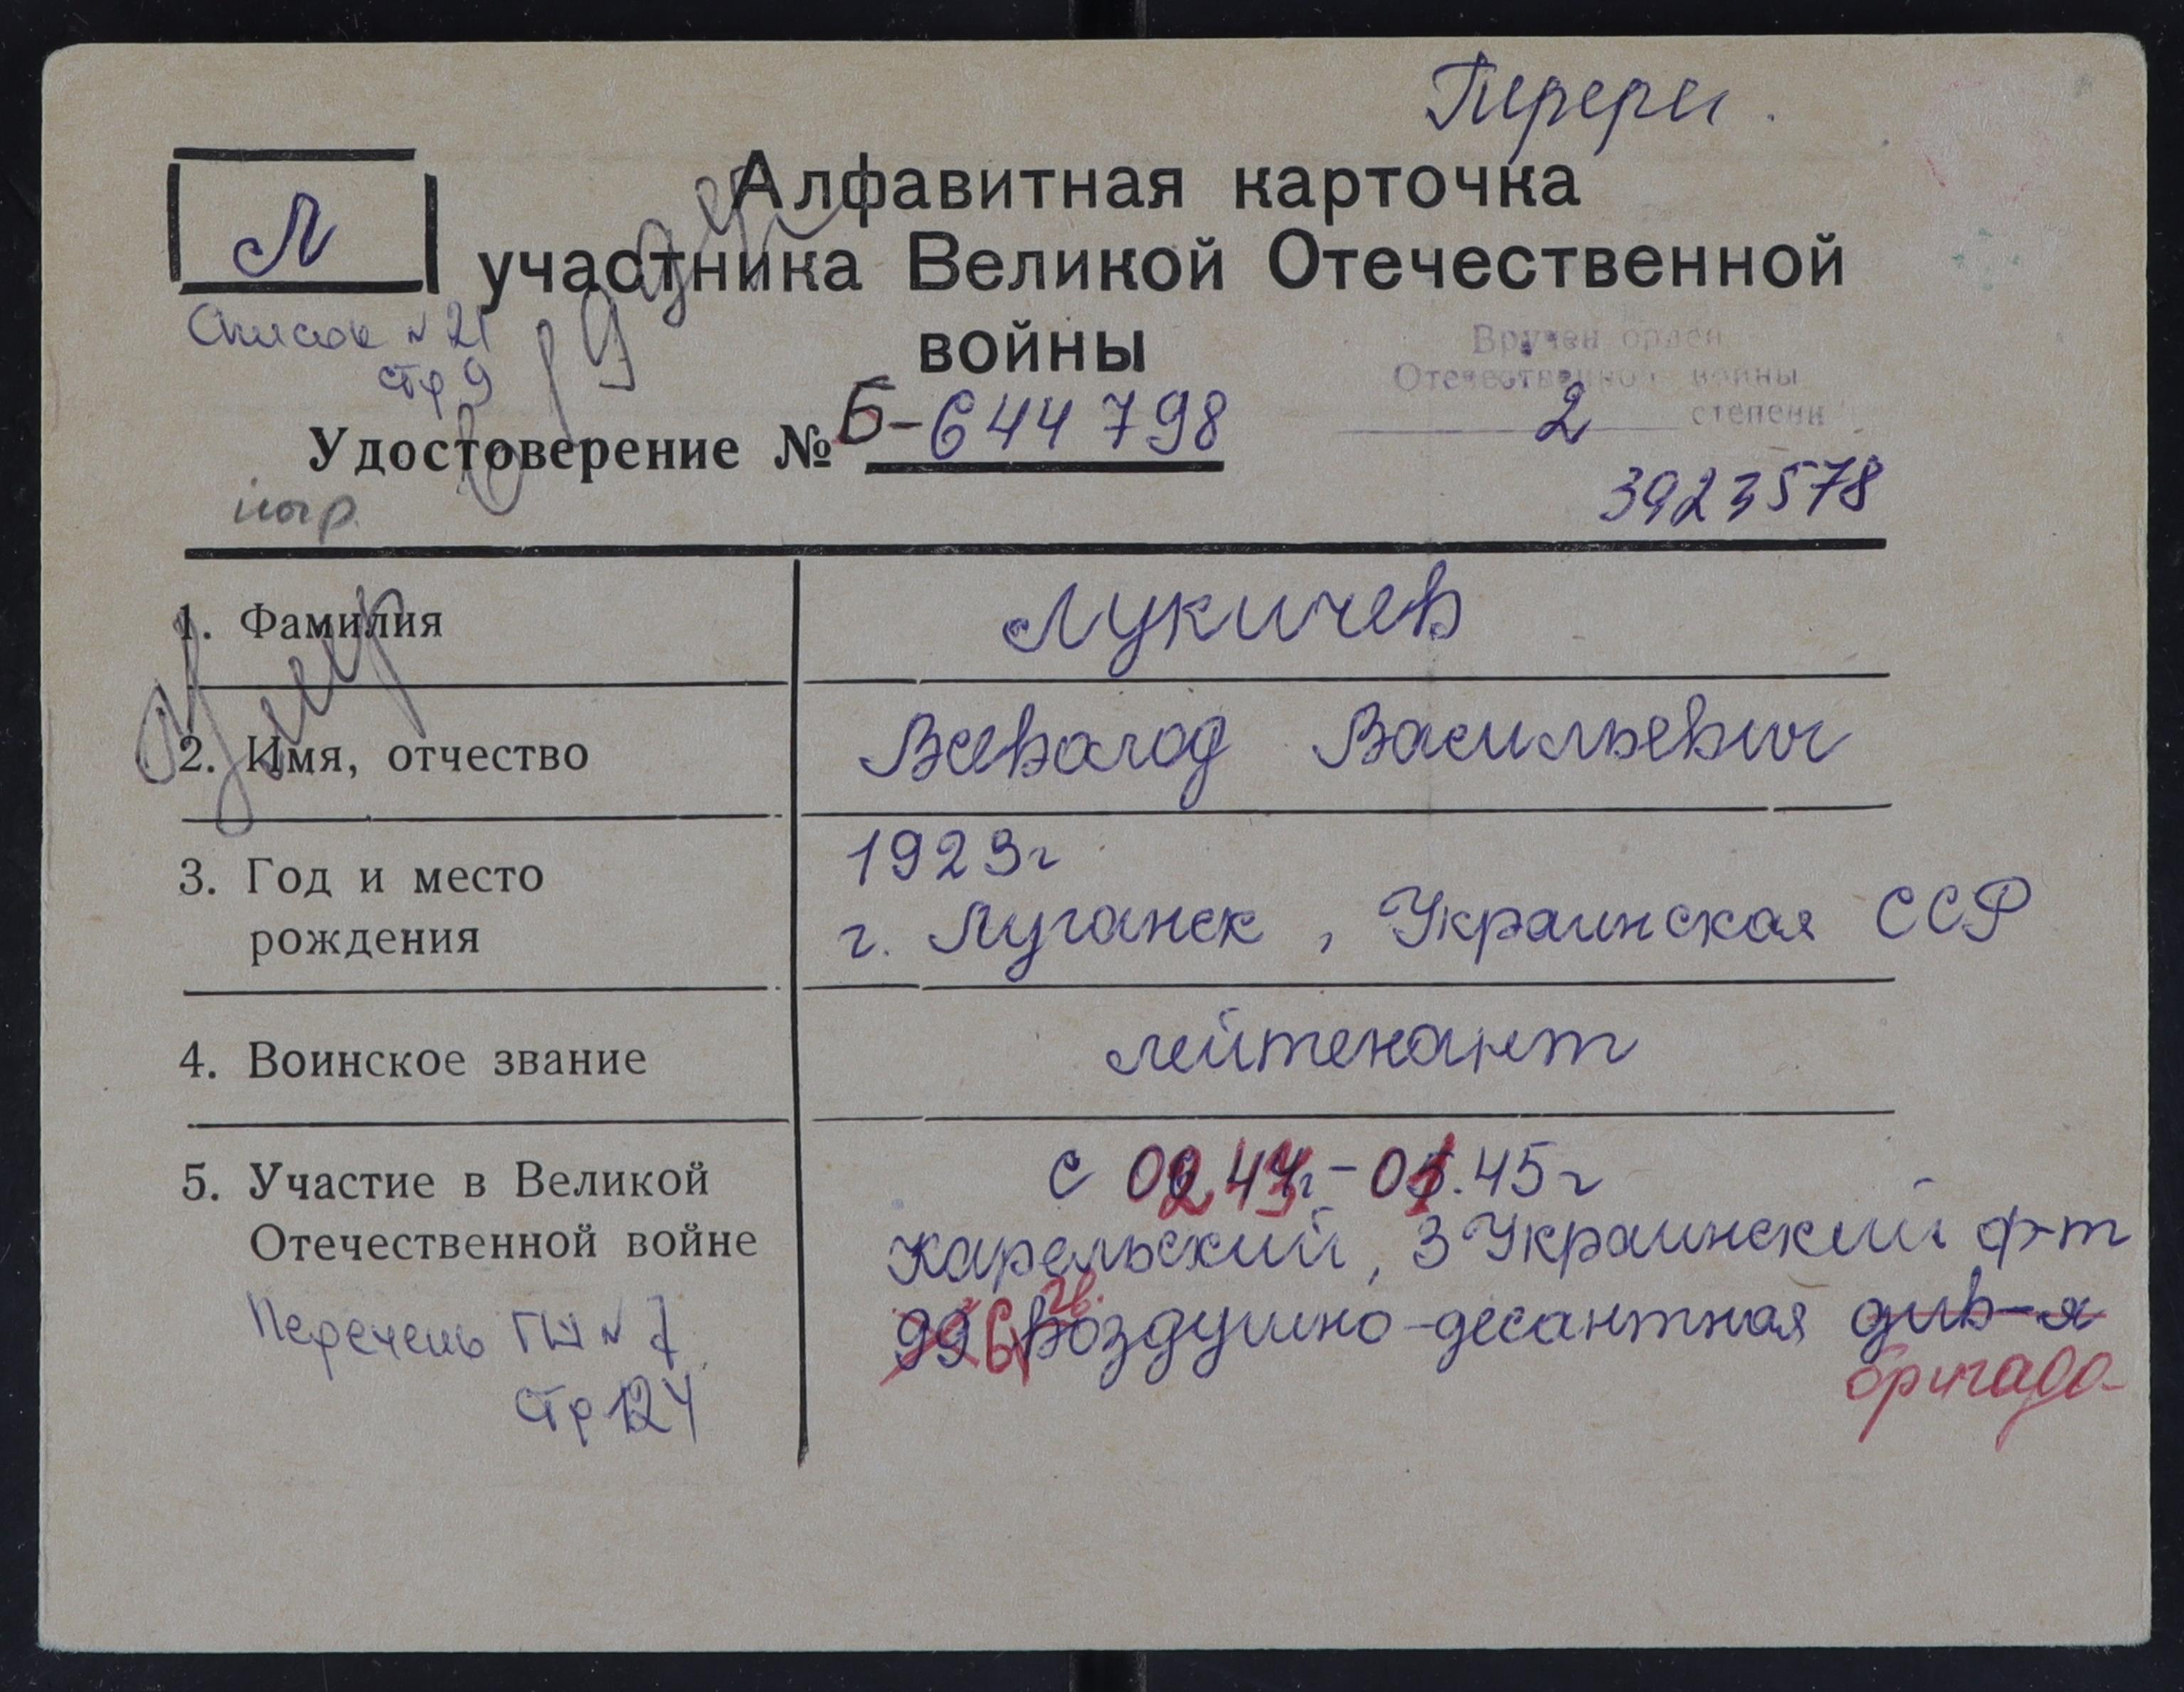 Перерег.
Л
Алфавитная карточка
участника Великой Отечественной
войны
Список № 21
стр 9
Вручен орден
Отечественной войны
2 степени
Удостоверение № Б-644798
3923578
1. Фамилия Лукичев
2. Имя, отчество Всеволод Васильевич
3. Год и место 1923г
рождения г. Луганск, Украинская ССР
4. Воинское звание лейтенант
5. Участие в Великой с 02 43г-01.45г
Отечественной войне Карельский, 3 Украинский ф-т
99 6 гв. воздушно-десантная див-я
бригада
Перечень ГШ № 7
стр 124
Умер